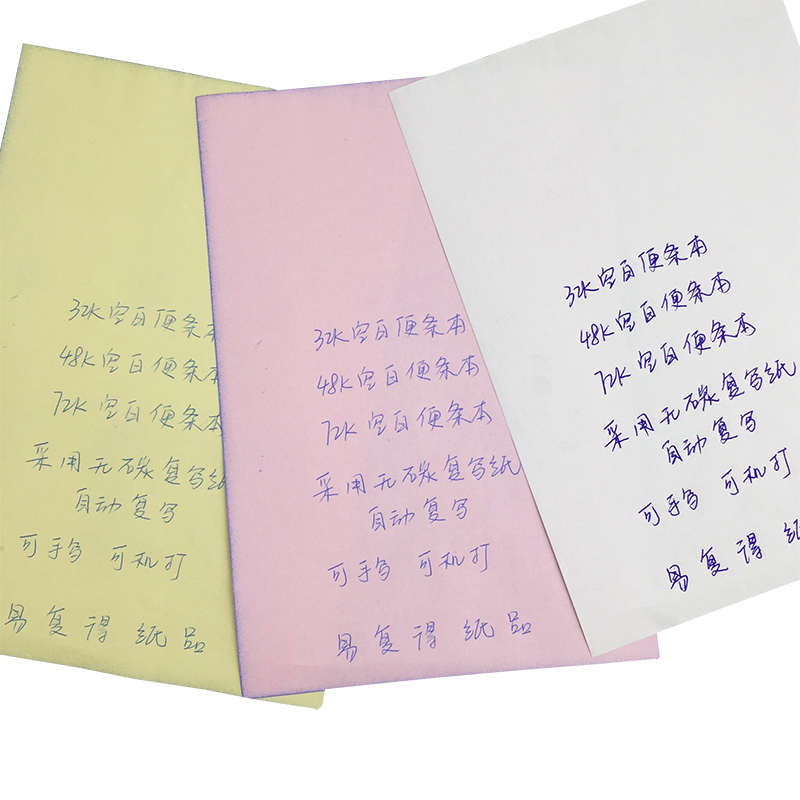 32K空白便条本
48K空白便条本
72K空白便条本
采用无碳复写纸
自动复写
可手写 可机打
易复得纸品
32K空白便条本
48K空白便条本
72K空白便条本
采用无碳复写纸
自动复写
可手写 可机打
易复得纸品
32K空白便条本
48K空白便条本
72K空白便条本
采用无碳复写纸
自动复写
可手写 可机打
易复得纸